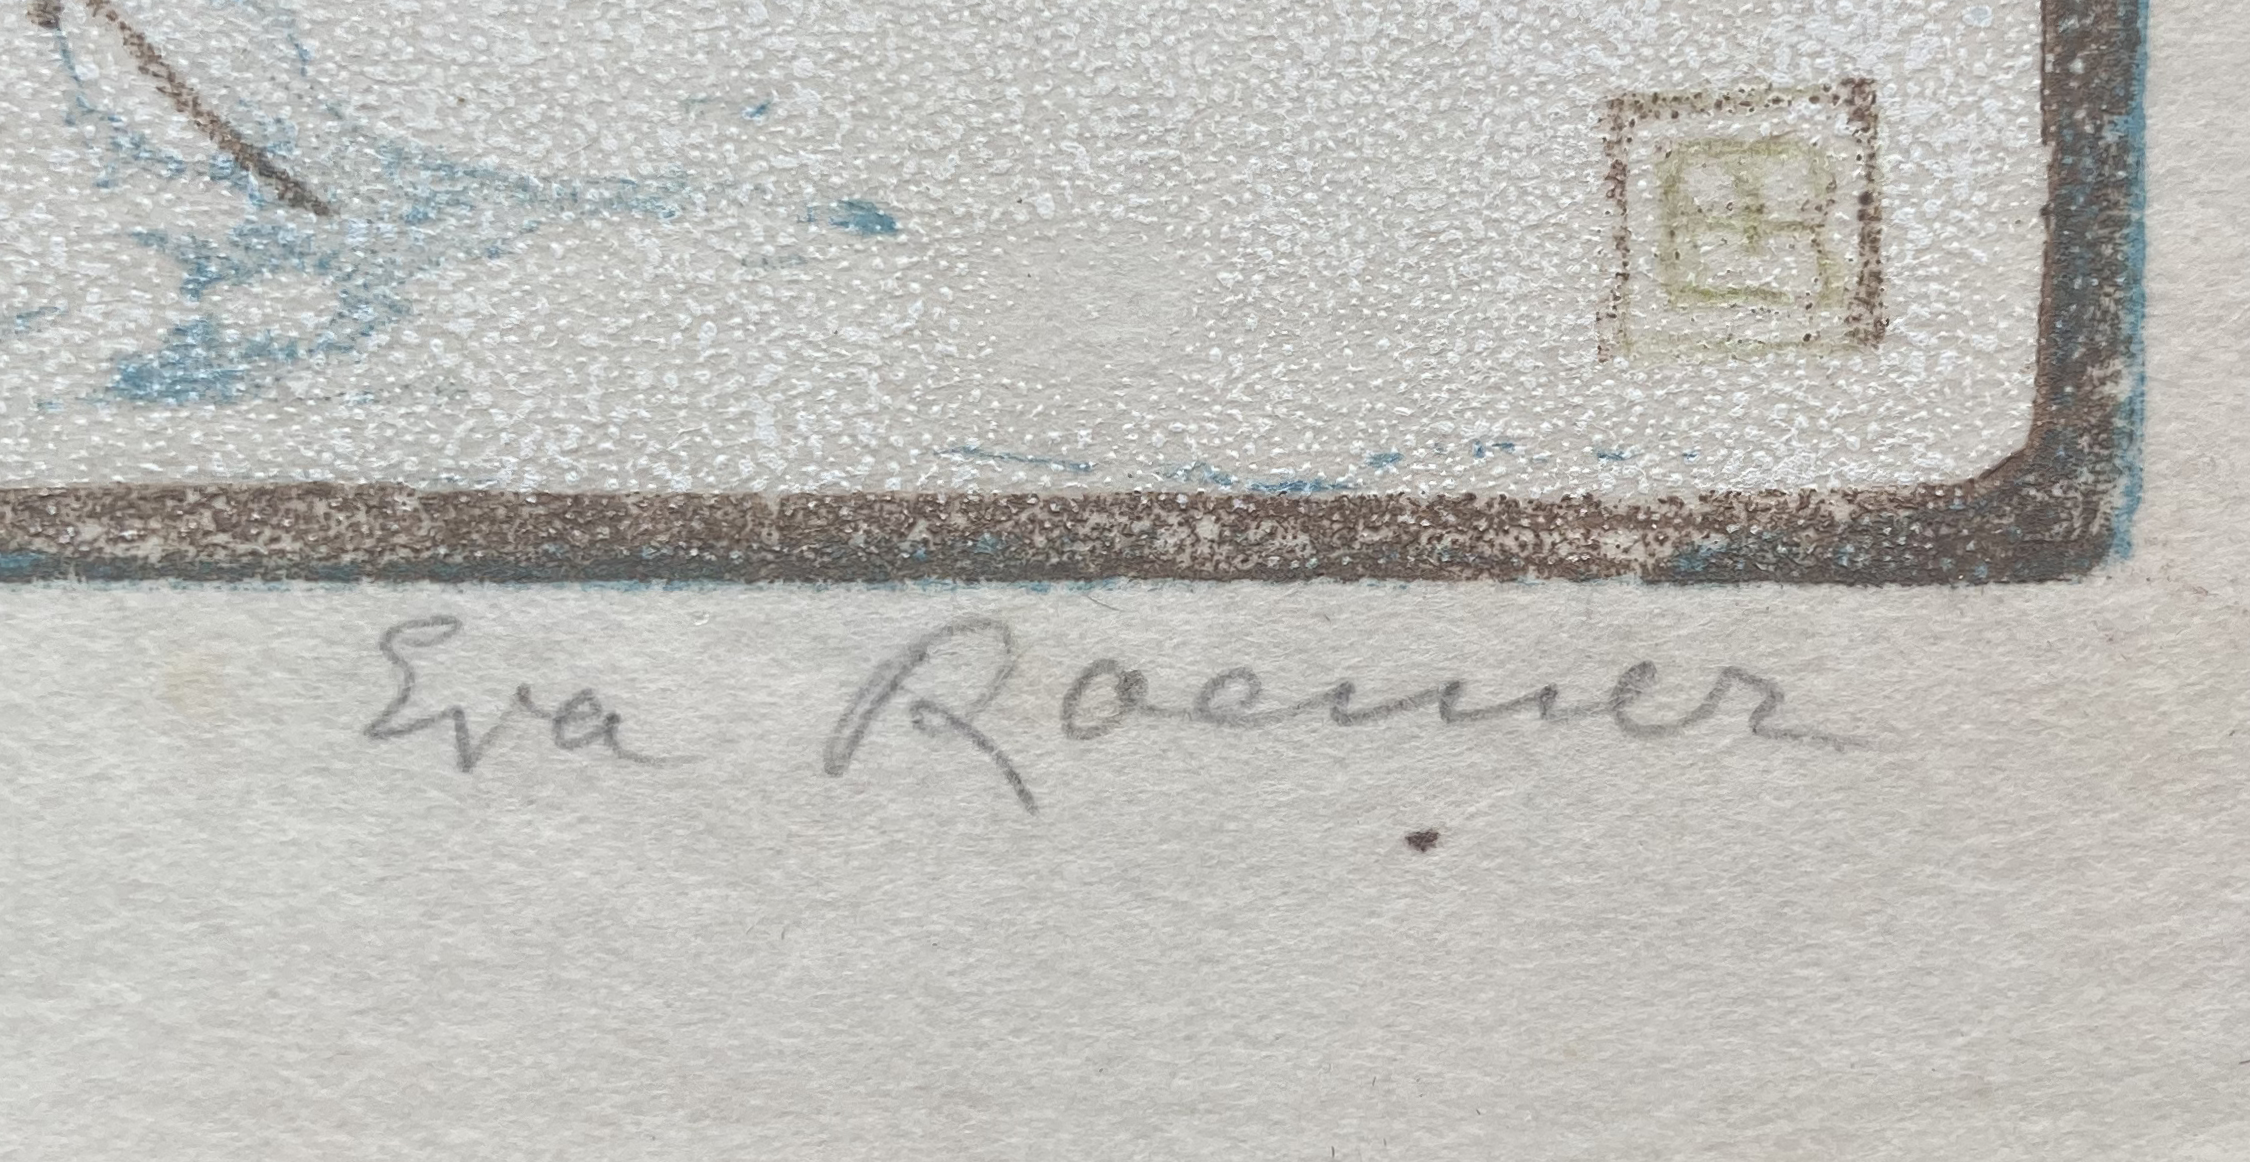 Eva Roemer